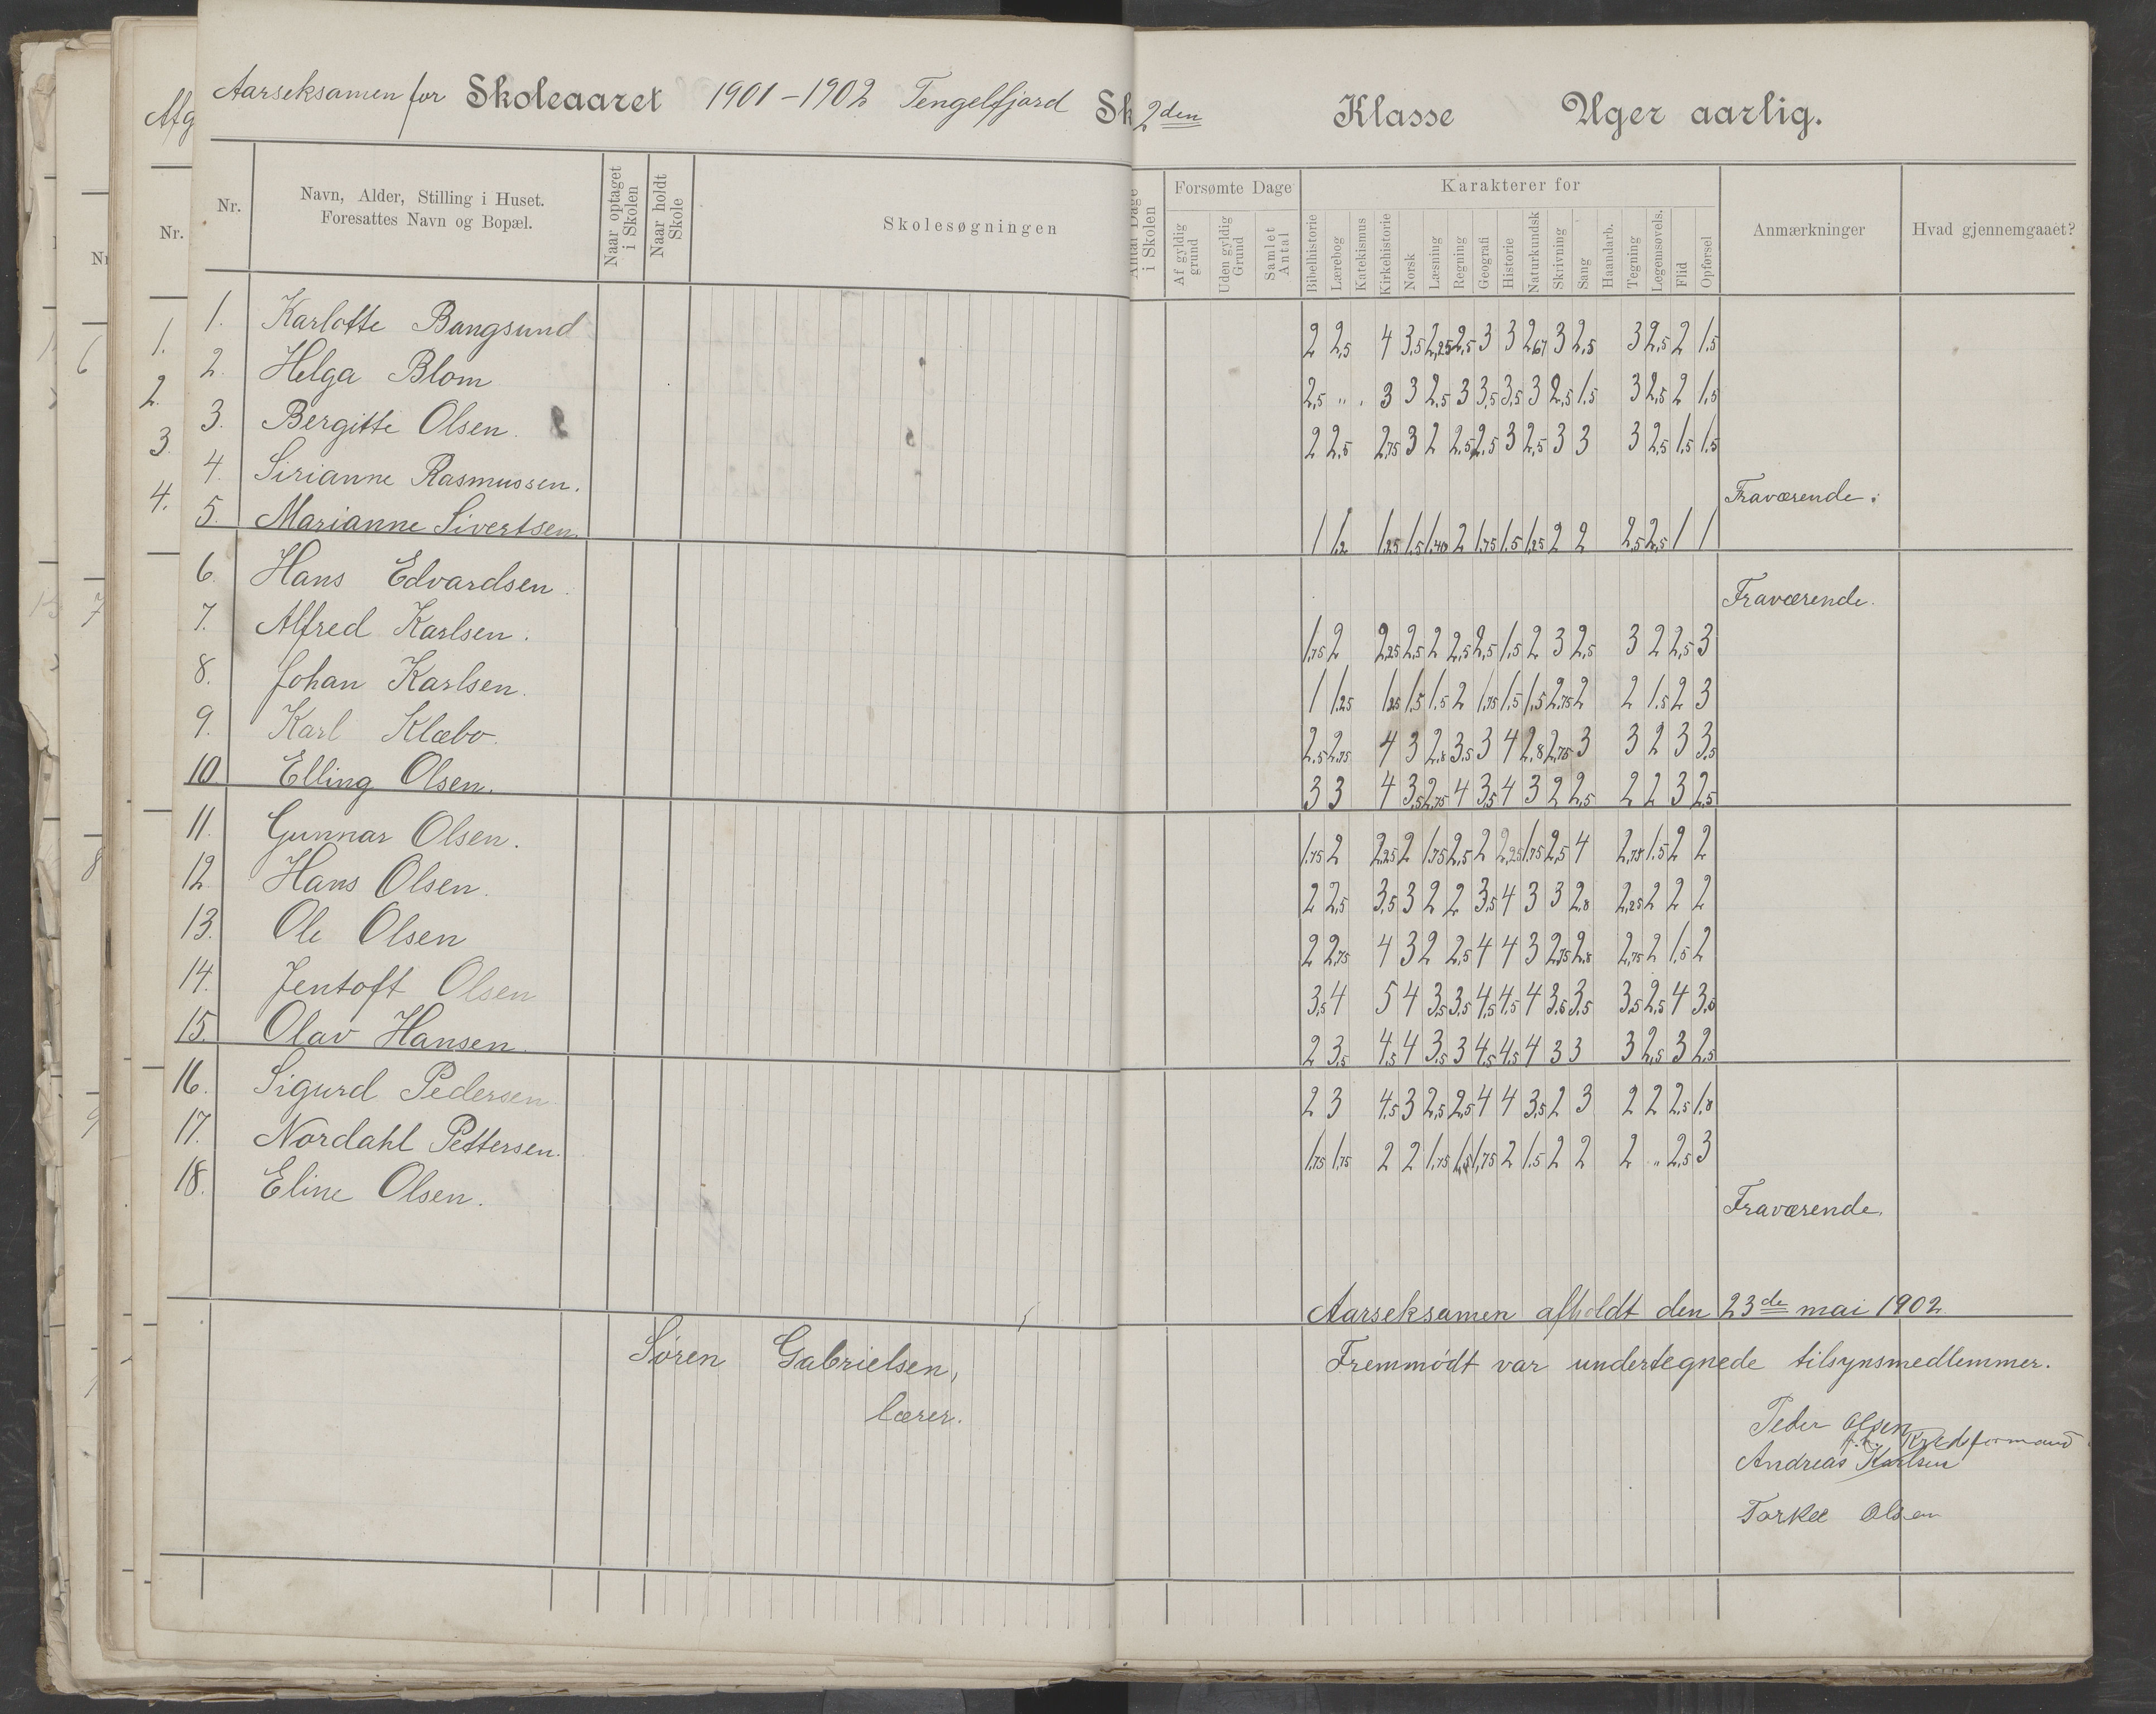 Aarseksamen for Skoleaaret 1901-1902 Tengelfjord Sk 2den Klasse Uger aarlig.
Nr.
Navn, Alder, Stilling i Huset.
Foresattes Navn og Bopæl.
Naar optaget
i Skolen
Naar holdt
Skole
Skolesøgningen
Antal Dage
i Skolen
Forsømte Dage
Af gyldig
grund
Uden gyldig
Grund
Samlet
Antal
Karakterer for
Bibelhistorie
Lærebog
Katekismus
Kirkehistorie
Norsk
Læsning
Regning
Geografi
Historie
Naturkundsk
Skrivning
Sang
Haandarb.
Tegning
Legemsøvels.
Flid
Opførsel
Anmærkninger
Hvad gjennemgaaet?
1. Karlotte Bangsund 2 2,5 4 3,5 2,25 2,5 3 3 2,67 3 2,5 3 2,5 2 1,5
2. Helga Blom 2,5 " . 3 3 2,5 3 3,5 3,5 3 2,5 1,5 3 2,5 2 1,5
3. Bergitte Olsen. 2 2,5 2,75 3 2 2,5 2,5 3 2,5 3 3 3 2,5 1,5 1,5
4. Sirianne Rasmussen. Fraværende.
5. Marianne Sivertsen. 1 1,2 1,25 1,5 1,40 2 1,75 1,5 1,25 2 2 2,5 2,5 1 1
6. Hans Edvardsen. Fraværende.
7. Alfred Karlsen. 1,75 2 2,25 2,5 2 2,5 2,5 1,5 2 3 2,5 3 2 2,5 3
8. Johan Karlsen. 1 1,25 1,25 1,5 1,5 2 1,75 1,5 1,5 2,75 2 2 1,5 2 3
9. Karl Klæbo. 2,5 2,75 4 3 2,8 3,5 3 4 2,8 2,75 3 3 2 3 3,5
10. Elling Olsen. 3 3 4 3,5 2,75 4 3,5 4 3 2 2,5 2 2 3 2,5
11. Gunnar Olsen. 1,75 2 2,25 2 1,75 2,5 2 2,25 1,75 2,5 4 2,75 1,5 2 2
12. Hans Olsen. 2 2,5 3,5 3 2 2 3,5 4 3 3 2,8 2,25 2 2 2
13. Ole Olsen 2 2,75 4 3 2 2,5 4 4 3 2,75 2,8 2,75 2 1,5 2
14. Jentoft Olsen 3,5 4 5 4 3,5 3,5 4,5 4,5 4 3,5 3,5 3,5 2,5 4 3,5
15. Olav Hansen. 2 3,5 4,5 4 3,5 3 4,5 4,5 4 3 3 3 2,5 3 2,5
16. Sigurd Pedersen 2 3 4,5 3 2,5 2,5 4 4 3,5 2 3 2 2 2,5 1,8
17. Nordahl Pettersen. 1,75 1,75 2 2 1,75 1,5 1,75 2 1,5 2 2 2 " 2,5 3
18. Eline Olsen. Fraværende.
Aarseksamen afholdt den 23de mai 1902
Søren Gabrielsen,
lærer.
Fremmødt var undertegnede tilsynsmedlemmer.
Peder Olsen
Kredsformand
Andreas Karlsen
Torkel Olsen
Nr.
1.
2.
3.
4.